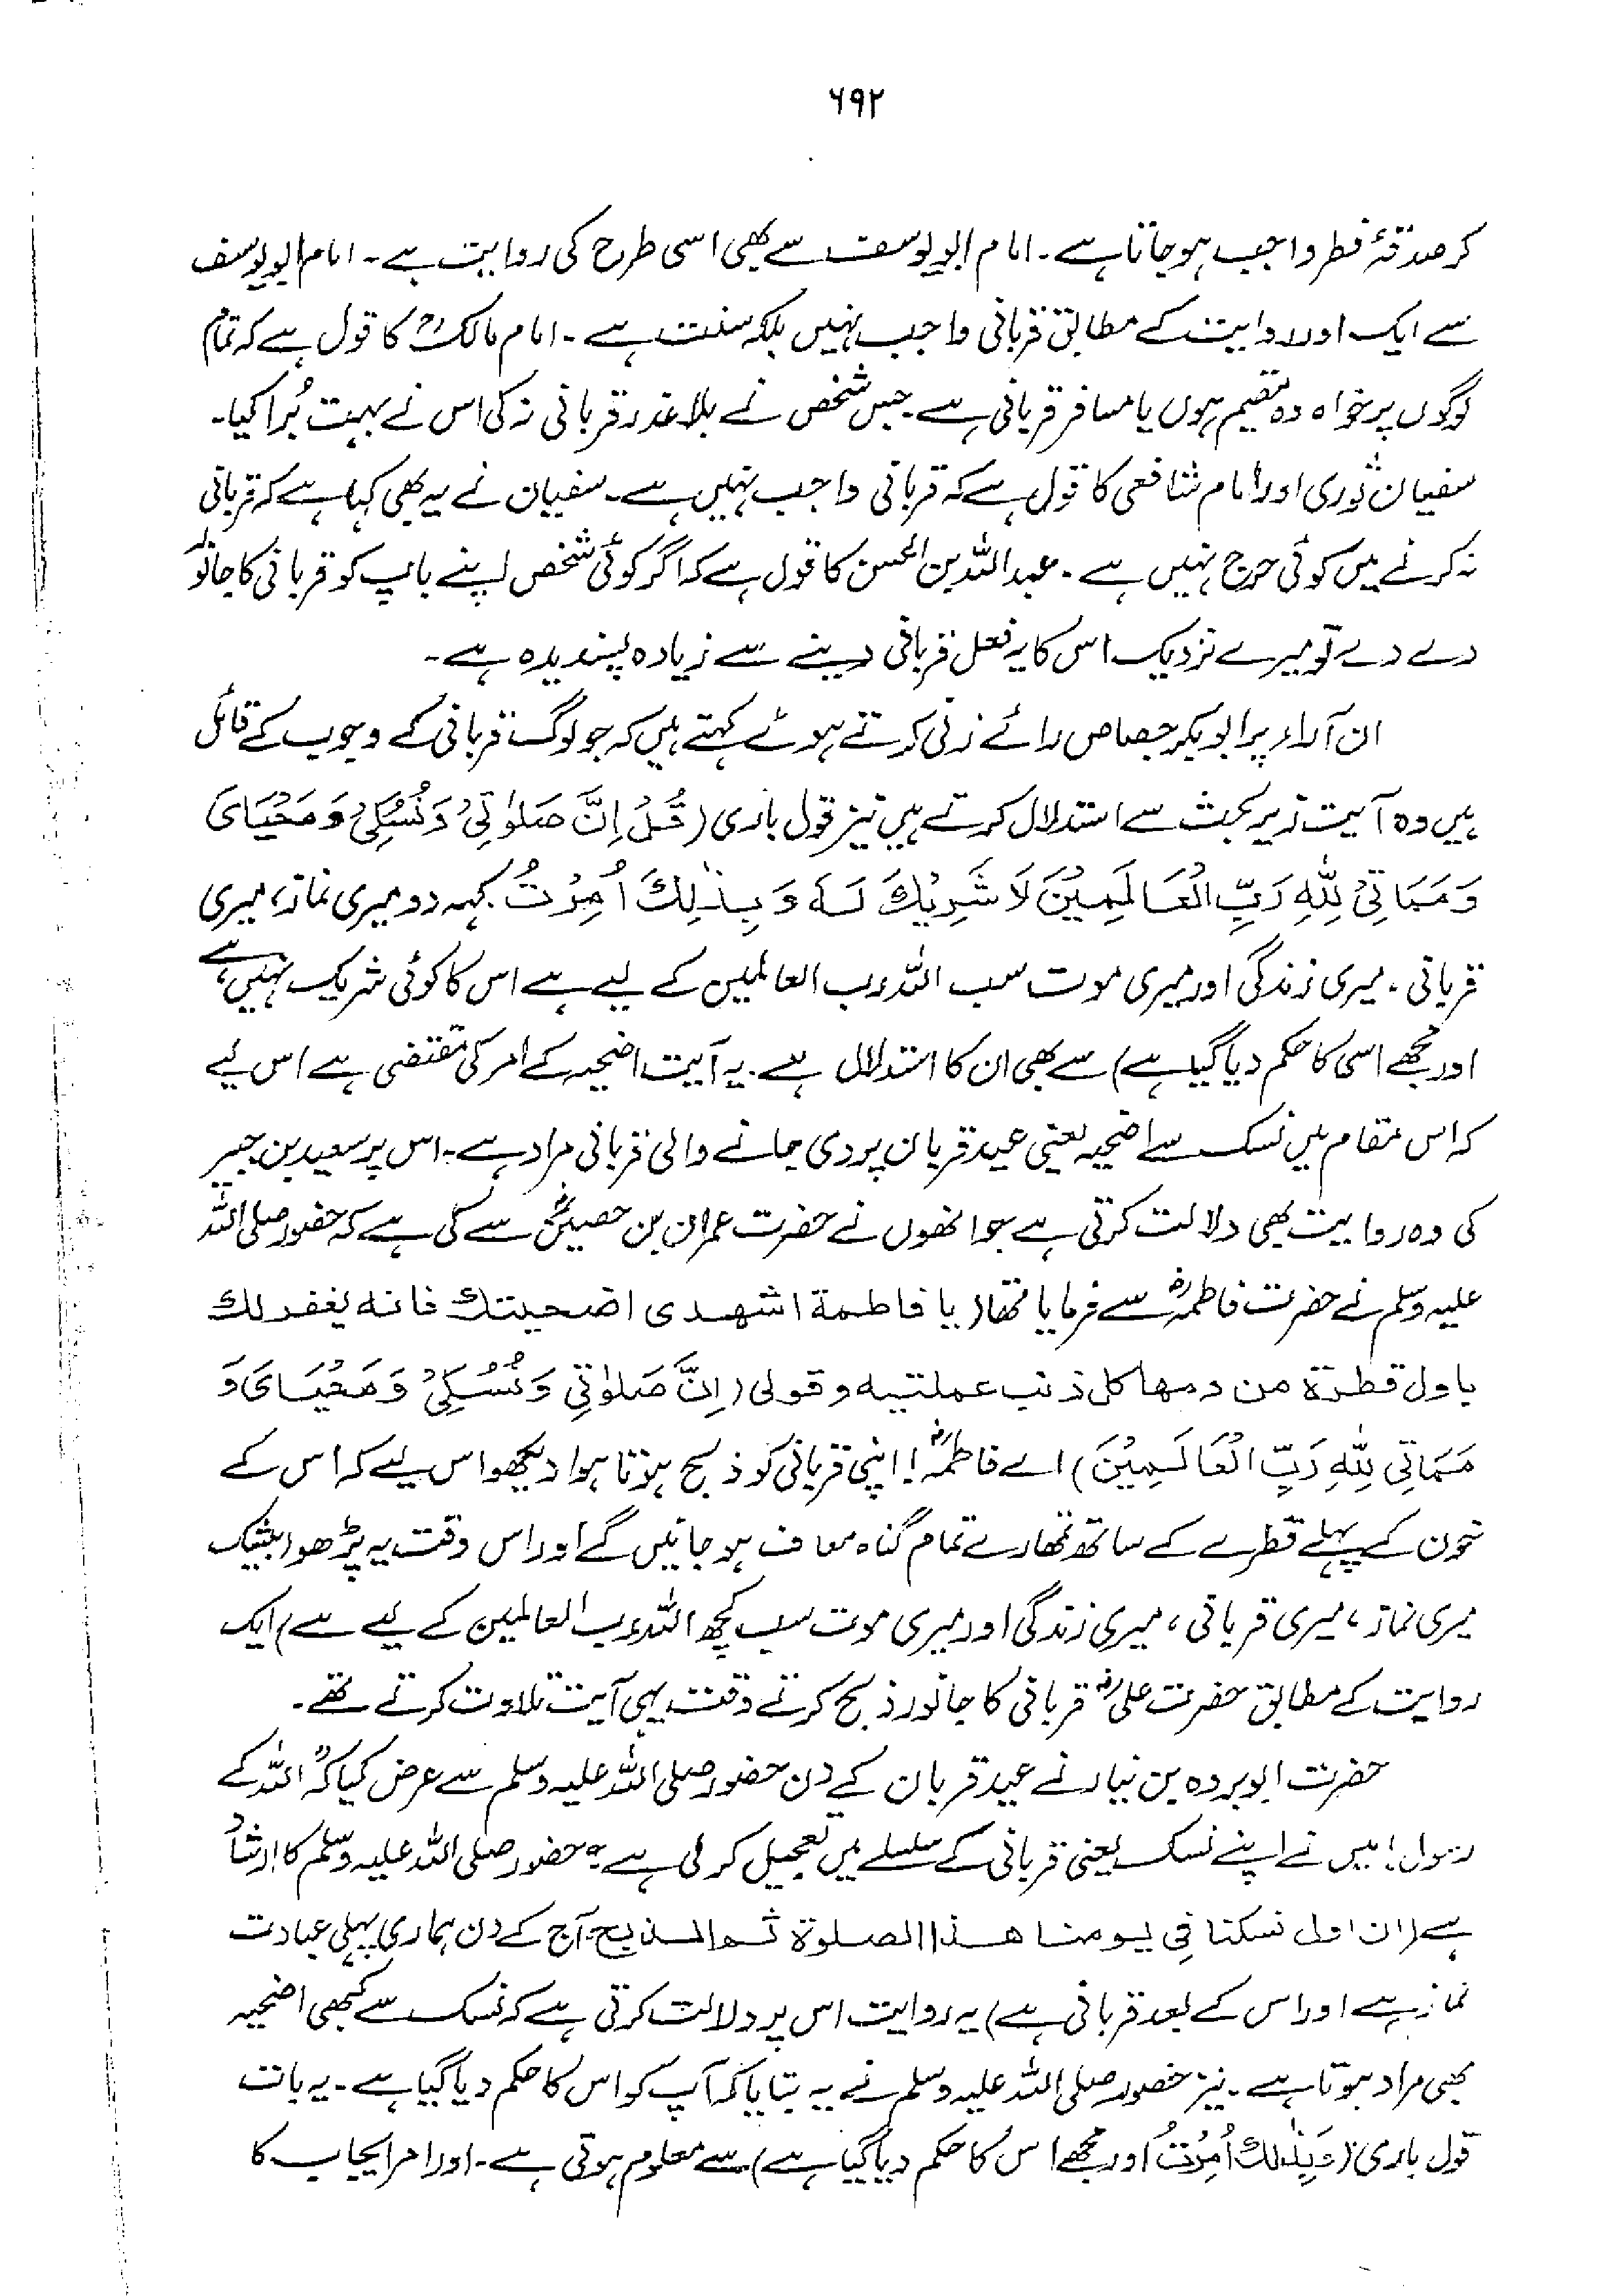 ۶۹۲
کر صدقۂ فطر واجب ہوجاتا ہے۔ امام ابویوسف سے بھی اسی طرح کی روایت ہے۔ امام ابویوسف
سے ایک اور روایت کے مطابق قربانی واجب نہیں بلکہ سنت ہے۔ امام مالکؒ کا قول ہے کہ تمام
لوگوں پر خواہ وہ مقیم ہوں یا مسافر قربانی ہے۔ جس شخص نے بلاعذر قربانی نہ کی اس نے بہت بُرا کیا۔
سفیان ثوری اور امام شافعی کا قول ہے کہ قربانی واجب نہیں ہے۔ سفیان نے یہ بھی کہا ہے کہ قربانی
نہ کرنے میں کوئی حرج نہیں ہے۔ عبداللہ بن الحسن کا قول ہے کہ اگر کوئی شخص اپنے باپ کو قربانی کا جانور
دے دے تو میرے نزدیک اس کا یہ فعل قربانی دینے سے زیادہ پسندیدہ ہے۔
ان آراء پر ابوبکر جصاص رائے زنی کرتے ہوئے کہتے ہیں کہ جو لوگ قربانی کے وجوب کے قائل
ہیں وہ آیت زیر بحث سے استدلال کرتے ہیں نیز قول باری (قُلْ اِنَّ صَلوٰتِیْ وَنُسُکِیْ وَمَحْیَایَ
وَمَمَاتِیْ لِلّٰہِ رَبِّ الْعَالَمِیْنَ لَا شَرِیْکَ لَہٗ وَبِذٰلِکَ اُمِرْتُ کہہ دو میری نماز، میری
قربانی، میری زندگی اور میری موت سب اللہ رب العالمین کے لیے ہے اس کا کوئی شریک نہیں ہے،
اور مجھے اسی کا حکم دیا گیا ہے) سے بھی ان کا استدلال ہے۔ یہ آیت اضحیہ کے امر کی مقتضی ہے اس لیے
کہ اس مقام میں نسک سے اضحیہ یعنی عید قربان پر دی جانے والی قربانی مراد ہے۔ اس پر سعید بن جبیر
کی وہ روایت بھی دلالت کرتی ہے جو انھوں نے حضرت عمران بن حصینؓ سے کی ہے کہ حضور صلی اللہ
علیہ وسلم نے حضرت فاطمہؓ سے فرمایا تھا (یا فاطمة اشہدی اضحیتک فانہ یغفر لک
باول قطرة من دمھا کل ذنب عملتیہ و قولی (اِنَّ صَلوٰتِیْ وَنُسُکِیْ وَمَحْیَایَ وَ
مَمَاتِی لِلّٰہِ رَبِّ الْعَالَمِیْنَ) اے فاطمہؓ! اپنی قربانی کو ذبح ہوتا ہوا دیکھو اس لیے کہ اس کے
خون کے پہلے قطرے کے ساتھ تمھارے تمام گناہ معاف ہو جائیں گے اور اس وقت یہ پڑھو (بیشک
میری نماز، میری قربانی، میری زندگی اور میری موت سب کچھ اللہ رب العالمین کے لیے ہے) ایک
روایت کے مطابق حضرت علیؓ قربانی کا جانور ذبح کرتے وقت یہی آیت تلاوت کرتے تھے۔
حضرت ابوبردہ بن نیار نے عید قربان کے دن حضور صلی اللہ علیہ وسلم سے عرض کیا کہ "اللہ کے
رسول! میں نے اپنے نسک یعنی قربانی کے سلسلے میں تعجیل کر لی ہے"۔ حضور صلی اللہ علیہ وسلم کا ارشاد
ہے (ان اول نسکنا فی یومنا ھذا الصلوة ثم الذبح۔ آج کے دن ہماری پہلی عبادت
نماز ہے اور اس کے بعد قربانی ہے) یہ روایت اس پر دلالت کرتی ہے کہ نسک سے کبھی اضحیہ
بھی مراد ہوتا ہے۔ نیز حضور صلی اللہ علیہ وسلم نے یہ بتایا کہ آپ کو اس کا حکم دیا گیا ہے۔ یہ بات
قول باری (وَبِذٰلِکَ اُمِرْتُ اور مجھے اس کا حکم دیا گیا ہے) سے معلوم ہوتی ہے۔ اور امر ایجاب کا